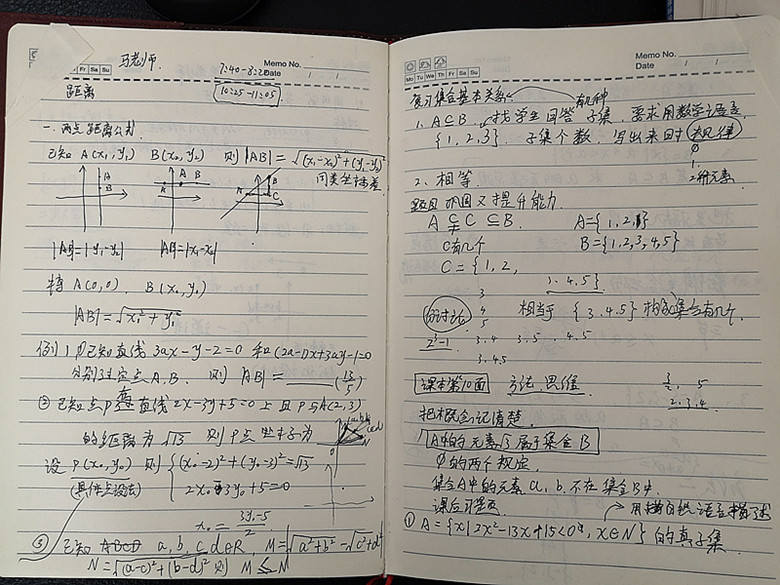 Fr Sa Su
马老师.
7:40-8:20
Date / /
Memo No.
距离
10:25-11:05
一. 两点距离公式
已知 A(x₁,y₁) B(x₂,y₂) 则 |AB|=√(x₁-x₂)²+(y₁-y₂)²
同类坐标差
|AB|=|y₁-y₂| |AB|=|x₁-x₂|
特 A(0,0). B(x₀,y₀)
|AB|=√x₁²+y₁²
例1 ① 已知直线 3ax-y-2=0 和 (2a-1)x+3ay-1=0
分别过定点 A.B. 则 |AB|= (13/5)
② 已知点P在直线 2x-3y+5=0 上 且 P与A(2,3)
的距离为 √13 则P点坐标为
设 P(x₀,y₀) 则 (x₀-2)²+(y₀-3)²=√13
(具体点设法) 2x₀-3y₀+5=0
x₀=(3y₀-5)/2
③ 已知 a,b,c,d∈R, M=|√a²+b²-√c²+d²|
N=√(a-c)²+(b-d)² 则 M≤N
Mo Tu We Th Fr Sa Su
Memo No.
Date / /
复习集合基本关系. 有几种
1. A⊆B. 找学生回答 子集, 要求用数学语言.
{1,2,3}. 子集个数, 写出来时 规律
∅
1.
2种元素
2. 相等.
题目巩固又提升能力.
A⊊C⊆B. A={1,2}
C有几个 B={1,2,3,4,5}
C={1,2,
3.4.5}
3
4
5
分讨论 相当于 {3.4.5} 构成集合有几个.
2³-1 3.4 3.5 . 4.5
3.4.5
课本第10面 方法.思维
3/2, 5
2.3.4
把概念记清楚.
A中的元素 属于集合B
∅的两个规定.
集合A中的元素 a, b. 不在集合B中.
课后习题
用自然语言描述
① A={x|2x²-13x+15<0, x∈N} 的真子集.